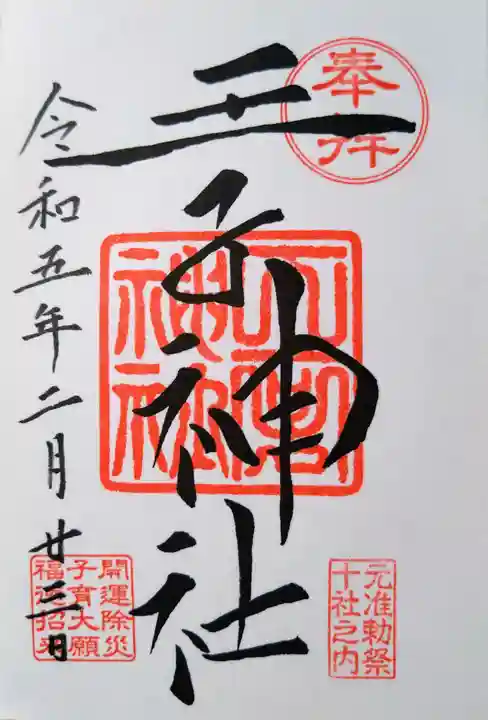 奉拝
王子神社
元准勅祭
十社之内
開運除災
子育大願
令和五年二月廿三日